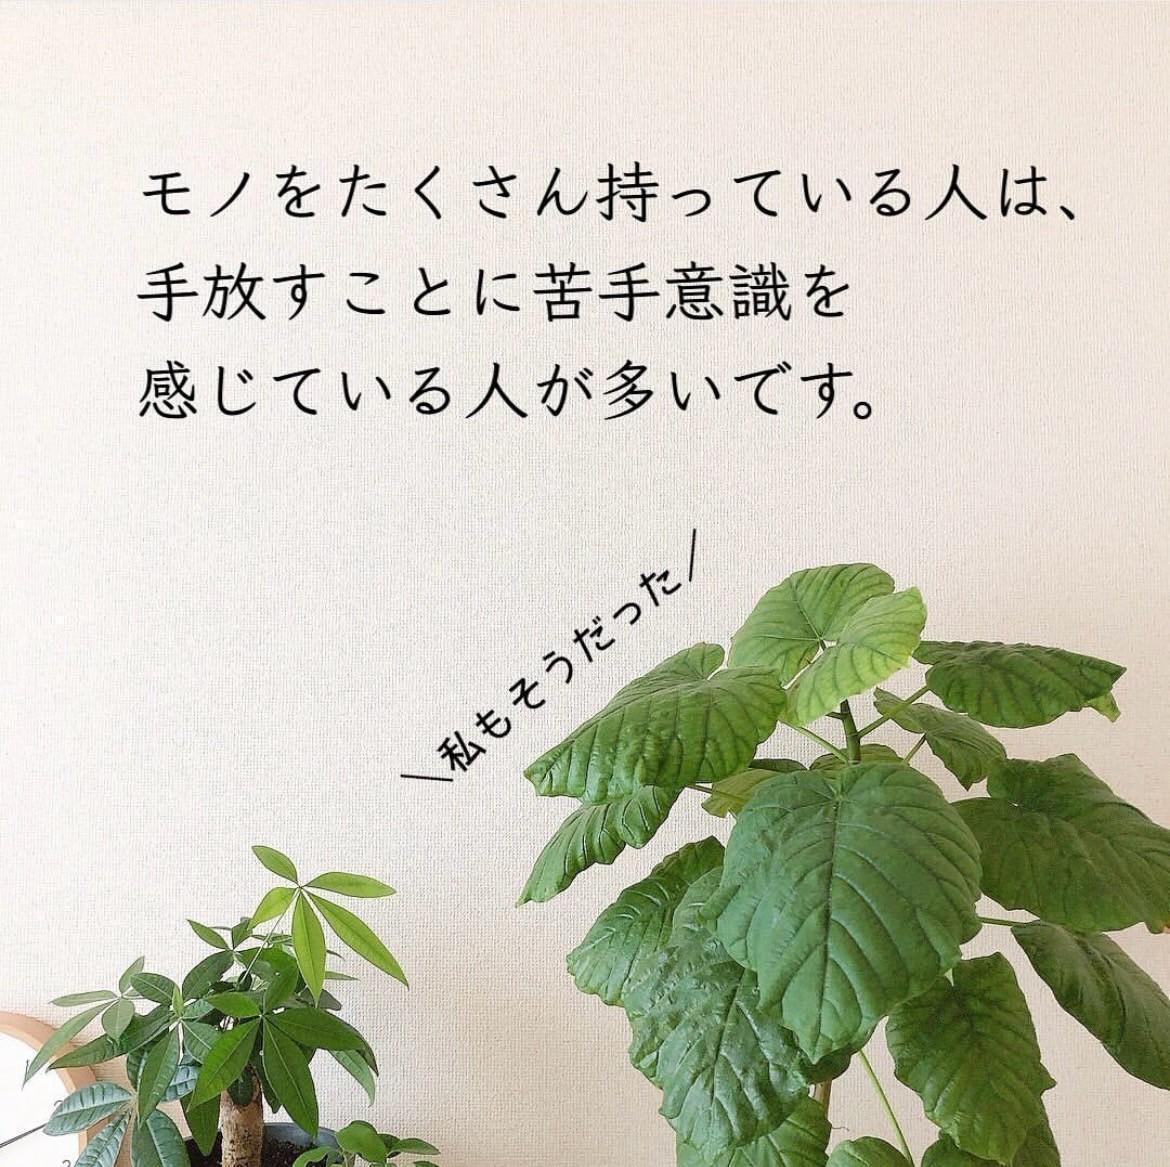 モノをたくさん持っている人は、
手放すことに苦手意識を
感じている人が多いです。
＼私もそうだった／